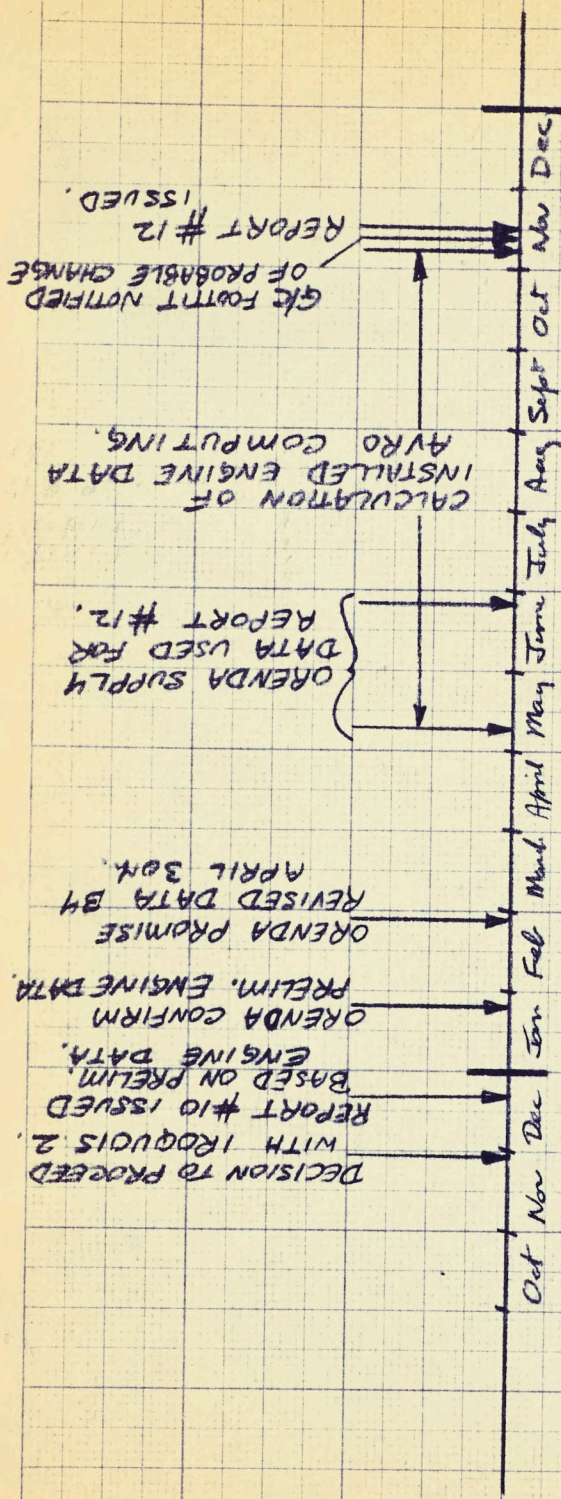 DECISION TO PROCEED
WITH IROQUOIS 2.
REPORT #10 ISSUED
BASED ON PRELIM.
ENGINE DATA.
ORENDA CONFIRM
PRELIM. ENGINE DATA.
ORENDA PROMISE
REVISED DATA BY
APRIL 30th.
ORENDA SUPPLY
DATA USED FOR
REPORT #12.
CALCULATION OF
INSTALLED ENGINE DATA
AVRO COMPUTING.
G/C FOOTTIT NOTIFIED
OF PROBABLE CHANGE
REPORT #12
ISSUED.
Oct Nov Dec Jan Feb March April May June July Aug Sept Oct Nov Dec